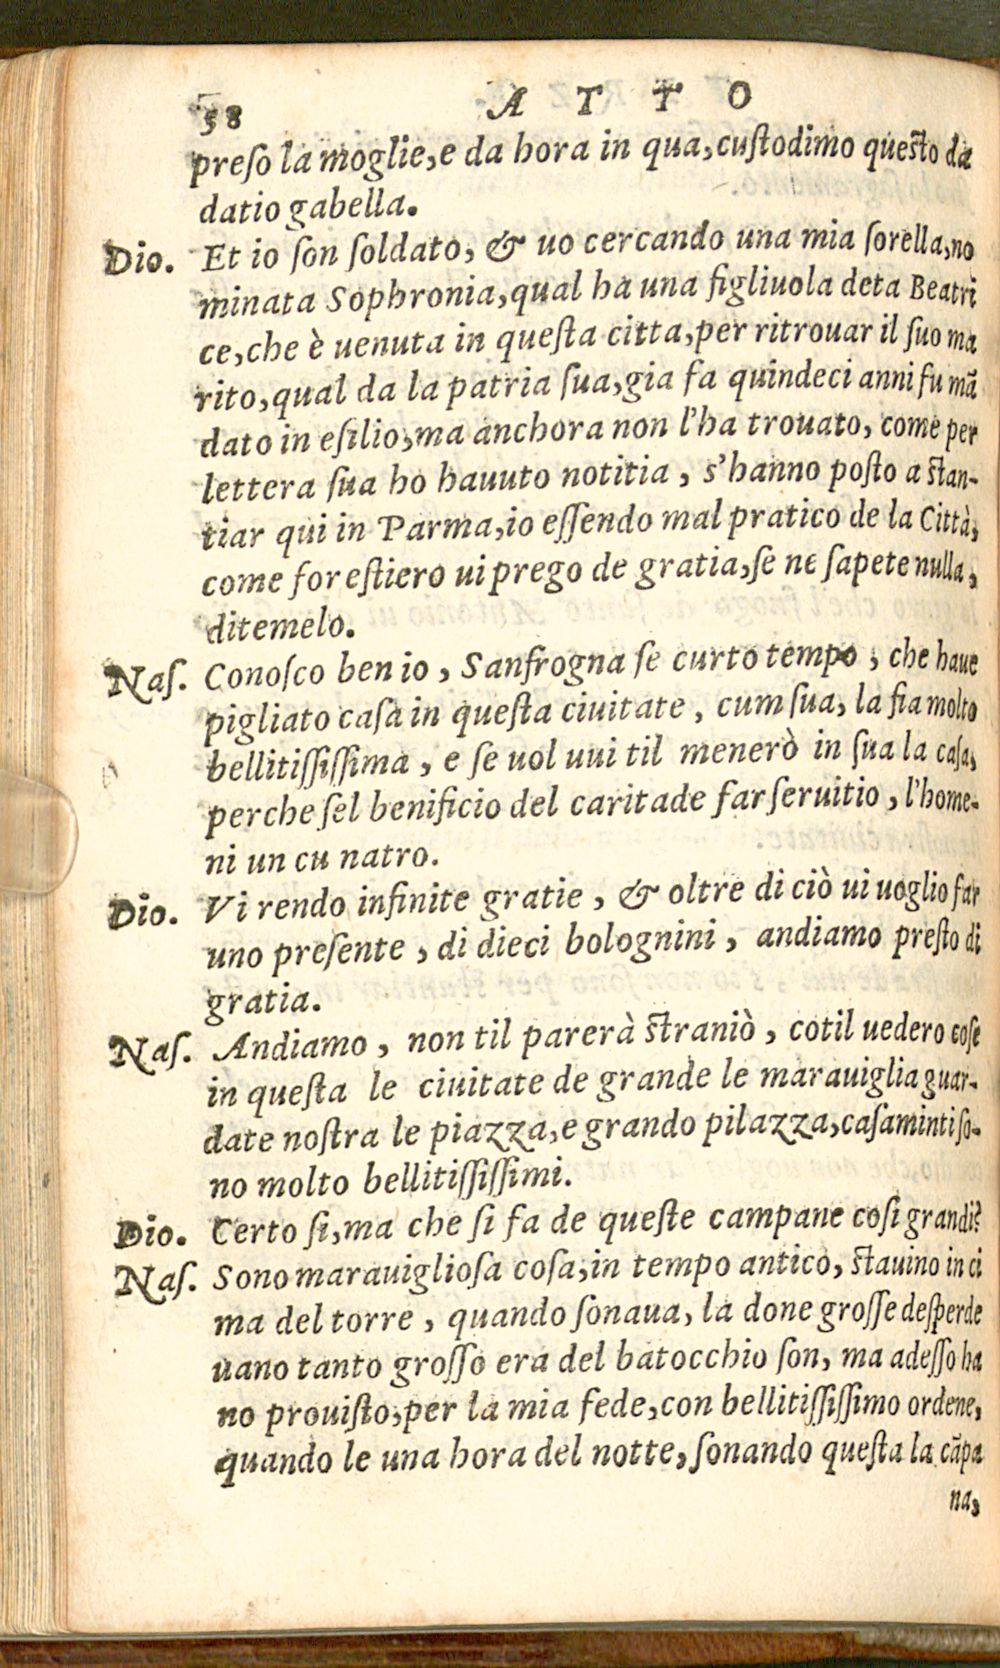 58 A T T O
preſo la moglie, e da hora in qua, cuſtodimo queſto da
datio gabella.
Dio. Et io ſon ſoldato, & uo cercando una mia ſorella, no
minata Sophronia, qual ha una figliuola deta Beatri
ce, che è uenuta in queſta citta, per ritrouar il ſuo ma
rito, qual da la patria ſua, gia fa quindeci anni fu mã
dato in eſilio, ma anchora non l'ha trouato, come per
lettera ſua ho hauuto notitia, s'hanno poſto a ſtan-
tiar qui in Parma, io eſſendo mal pratico de la Città,
come foreſtiero ui prego de gratia, ſe ne ſapete nulla,
ditemelo.
Naſ. Conoſco ben io, Sanfrogna ſe curto tempo, che haue
pigliato caſa in queſta ciuitate, cum ſua, la fia molto
bellitiſſiſſima, e ſe uol uui til menerò in ſua la caſa,
perche ſel benificio del caritade far ſeruitio, l'home-
ni un cu natro.
Dio. Vi rendo infinite gratie, & oltre di ciò ui uoglio far
uno preſente, di dieci bolognini, andiamo preſto di
gratia.
Naſ. Andiamo, non til parerà ſtraniò, cotil uedero coſe
in queſta le ciuitate de grande le marauiglia guar-
date noſtra le piazza, e grando pilazza, caſaminti ſo-
no molto bellitiſſiſſimi.
Dio. Certo ſi, ma che ſi fa de queſte campane coſi grandi?
Naſ. Sono marauiglioſa coſa, in tempo antico, ſtauino in ci
ma del torre, quando ſonaua, la done groſſe deſperde
uano tanto groſſo era del batocchio ſon, ma adeſſo ha
no prouiſto, per la mia fede, con bellitiſſiſſimo ordene,
quando le una hora del notte, ſonando queſta la cãpa
na,